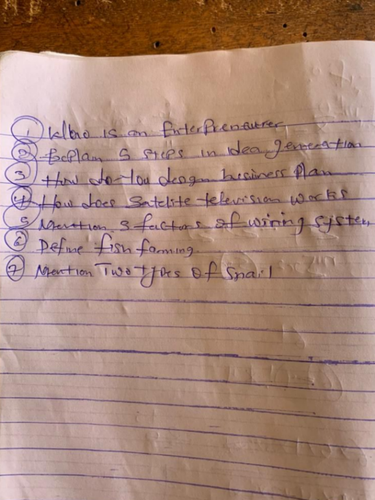 1 Who is an Enterpreneurer
2 Explan 5 steps in idea generation
3 How do you design business plan
4 How does Satelite television works
5 Mention 3 factors of wiring system
6 Define fish farming
7 Mention Two types of Snail